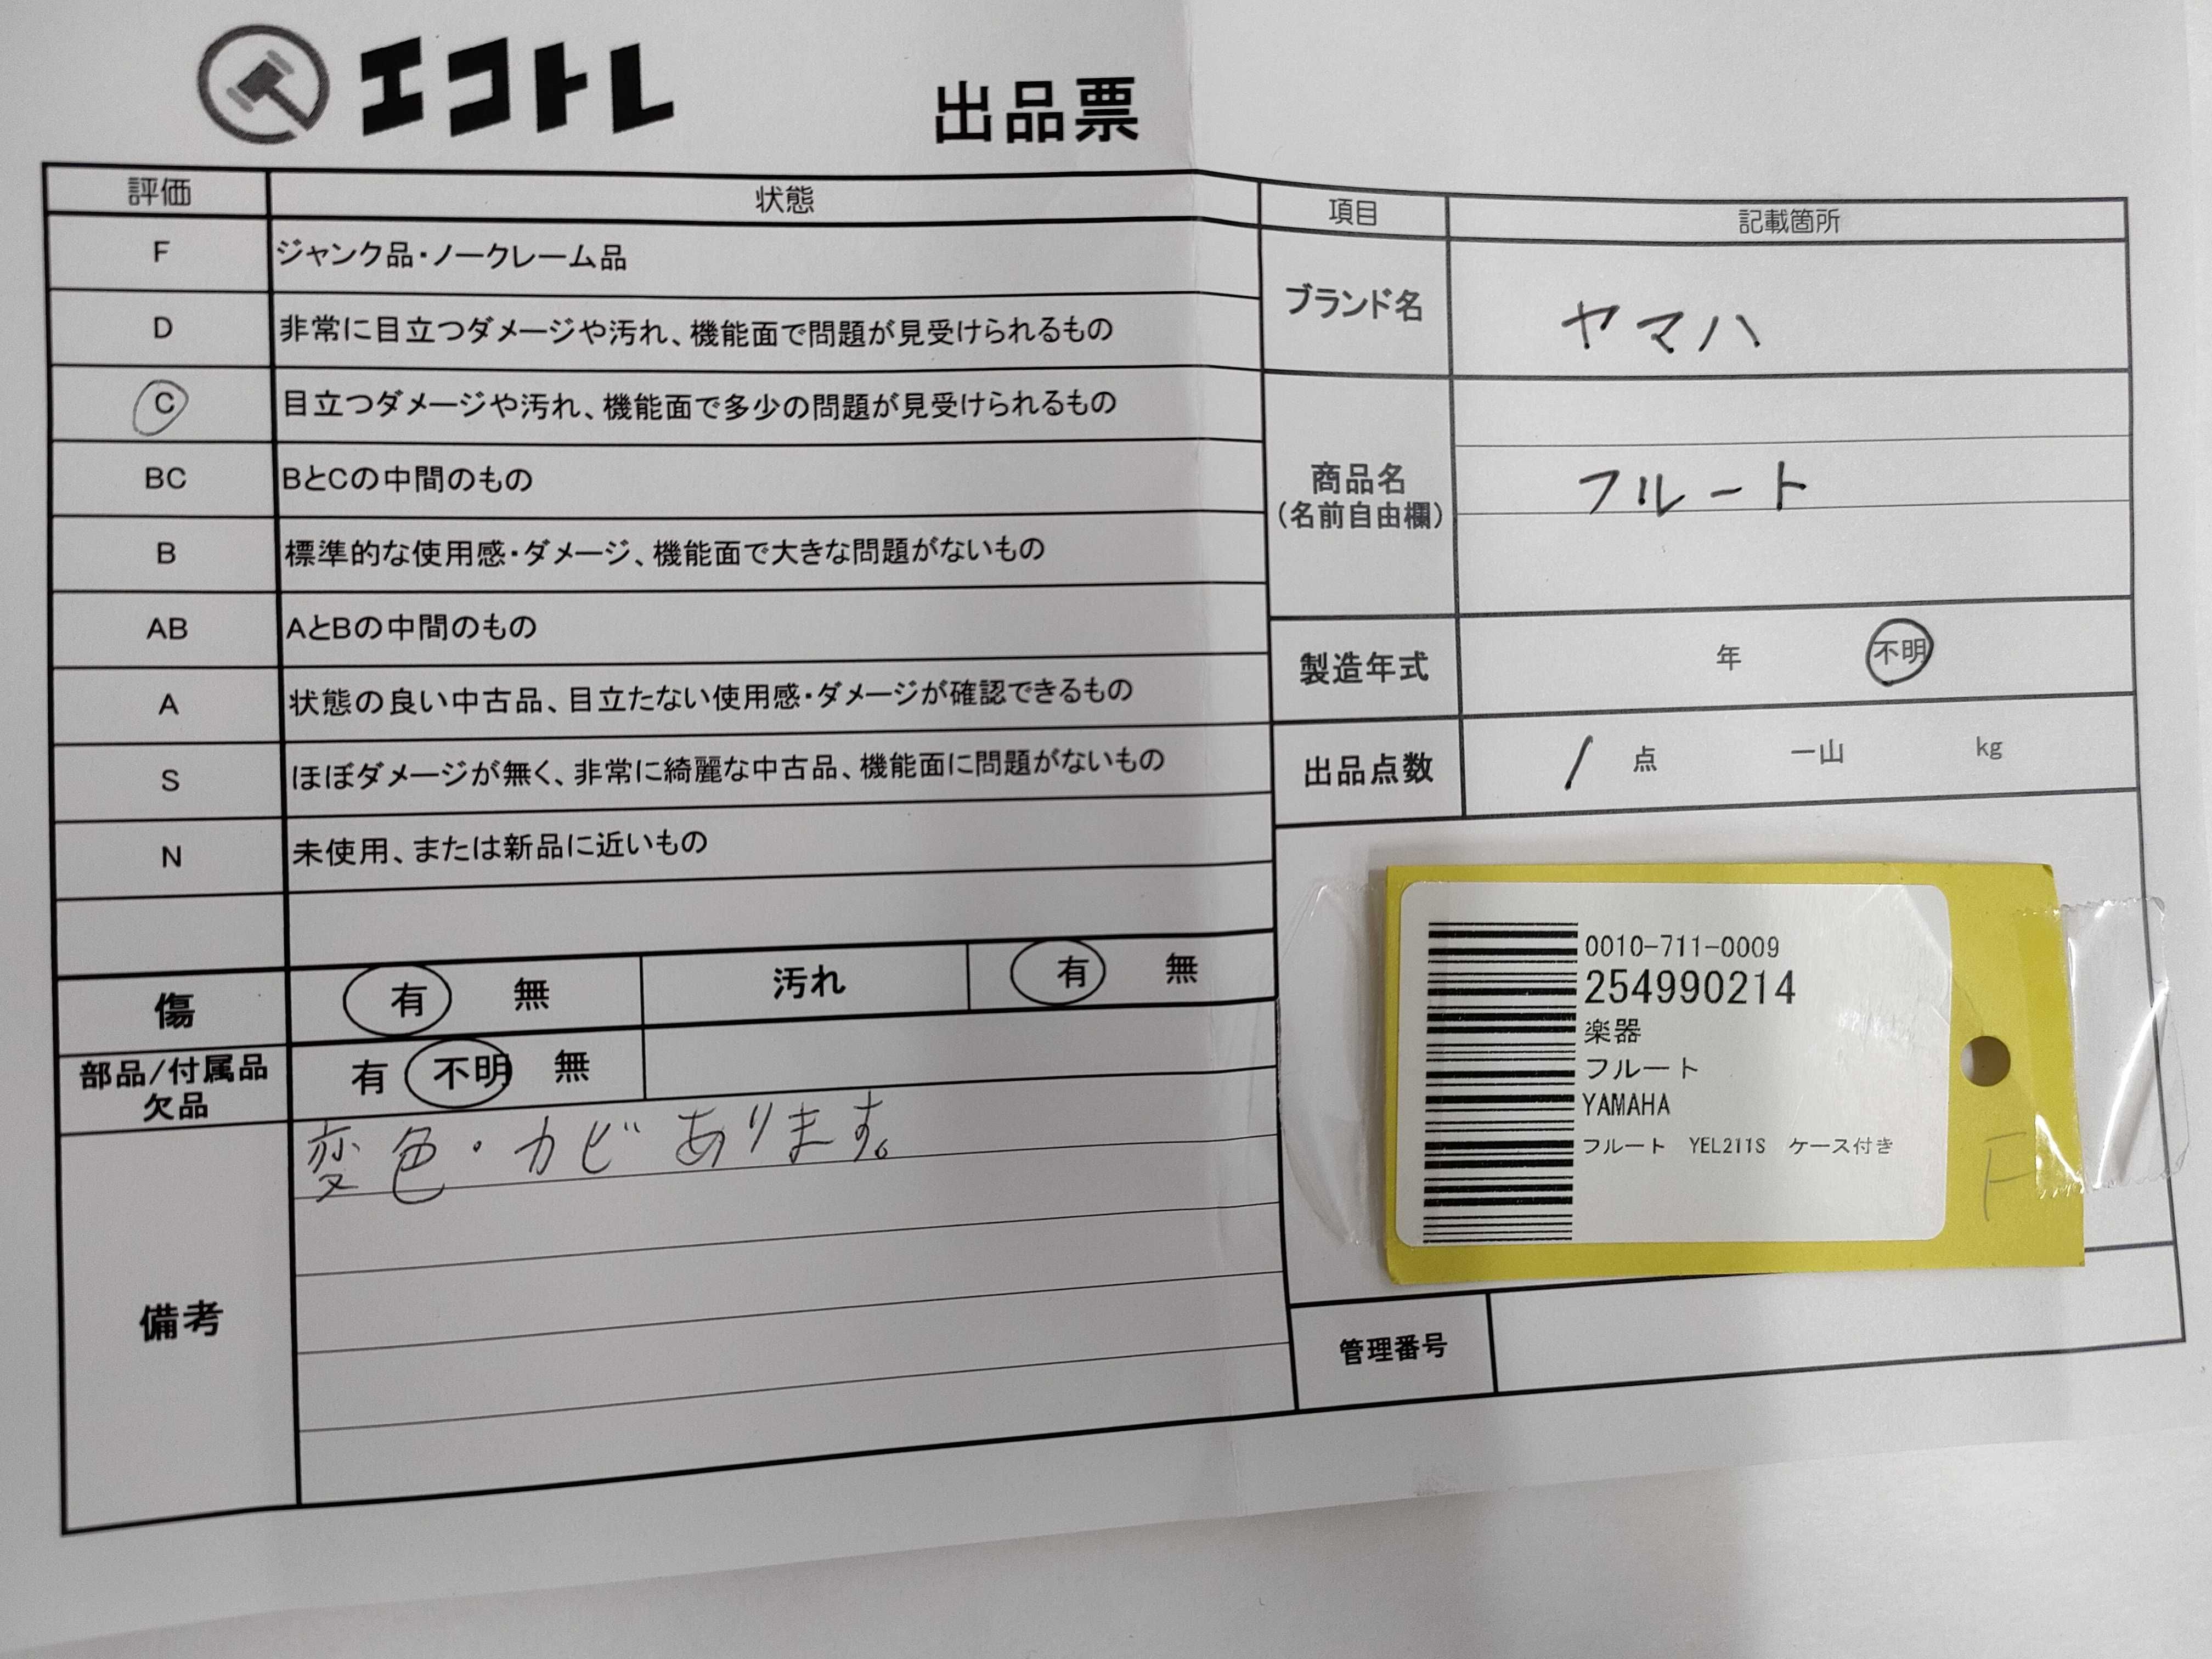 エコトレ
出品票
評価 状態
F ジャンク品・ノークレーム品
D 非常に目立つダメージや汚れ、機能面で問題が見受けられるもの
C 目立つダメージや汚れ、機能面で多少の問題が見受けられるもの
BC BとCの中間のもの
B 標準的な使用感・ダメージ、機能面で大きな問題がないもの
AB AとBの中間のもの
A 状態の良い中古品、目立たない使用感・ダメージが確認できるもの
S ほぼダメージが無く、非常に綺麗な中古品、機能面に問題がないもの
N 未使用、または新品に近いもの
傷 有 無 汚れ 有 無
部品/付属品
欠品
有 不明 無
備考
変色・カビあります。
項目 記載箇所
ブランド名 ヤマハ
商品名
(名前自由欄)
フルート
製造年式 年 不明
出品点数 1 点 一山 kg
0010-711-0009
254990214
楽器
フルート
YAMAHA
フルート YEL211S ケース付き
F
管理番号